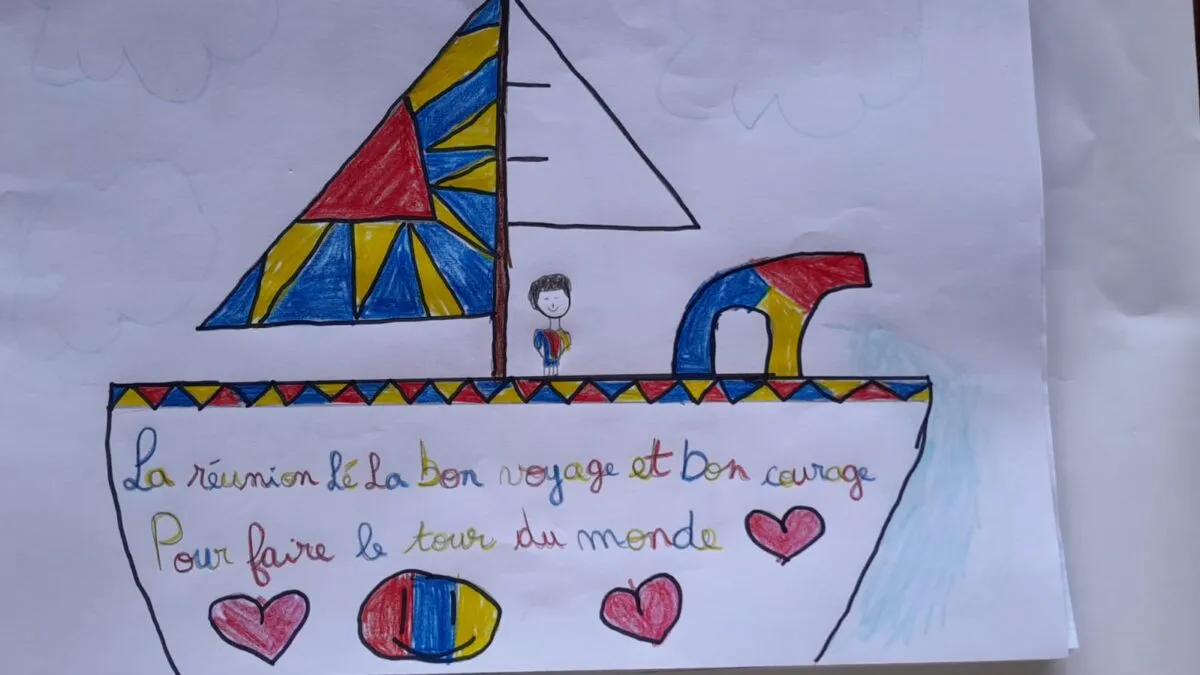 La réunion Lé La bon voyage et bon courage
Pour faire le tour du monde